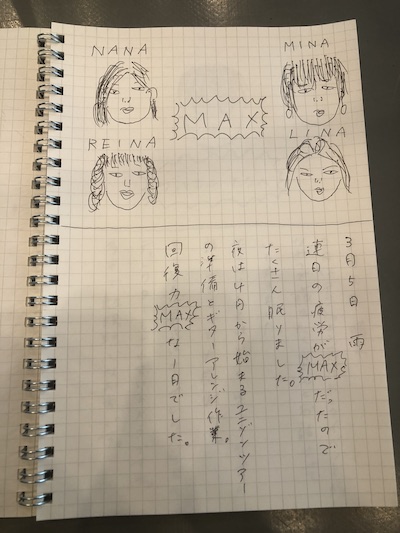 NANA
MINA
MAX
REINA
LINA
3月5日 雨
連日の疲労がMAXだったので
たくさん眠りました。
夜は4月から始まるユニゾンツアー
の準備とギターアレンジ作業。
回復力MAXな1日でした。